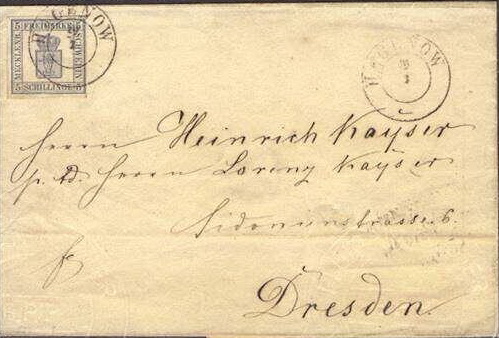 5 FREIMARKE 5
MECKLENB.
SCHWERIN
5 SCHILLINGE 5
HAGENOW
HAGENOW
Herrn Heinrich Kayser
p. Ad. Herrn Lorenz Kayser
Sidonienstrasse 6.
fr
Dresden.